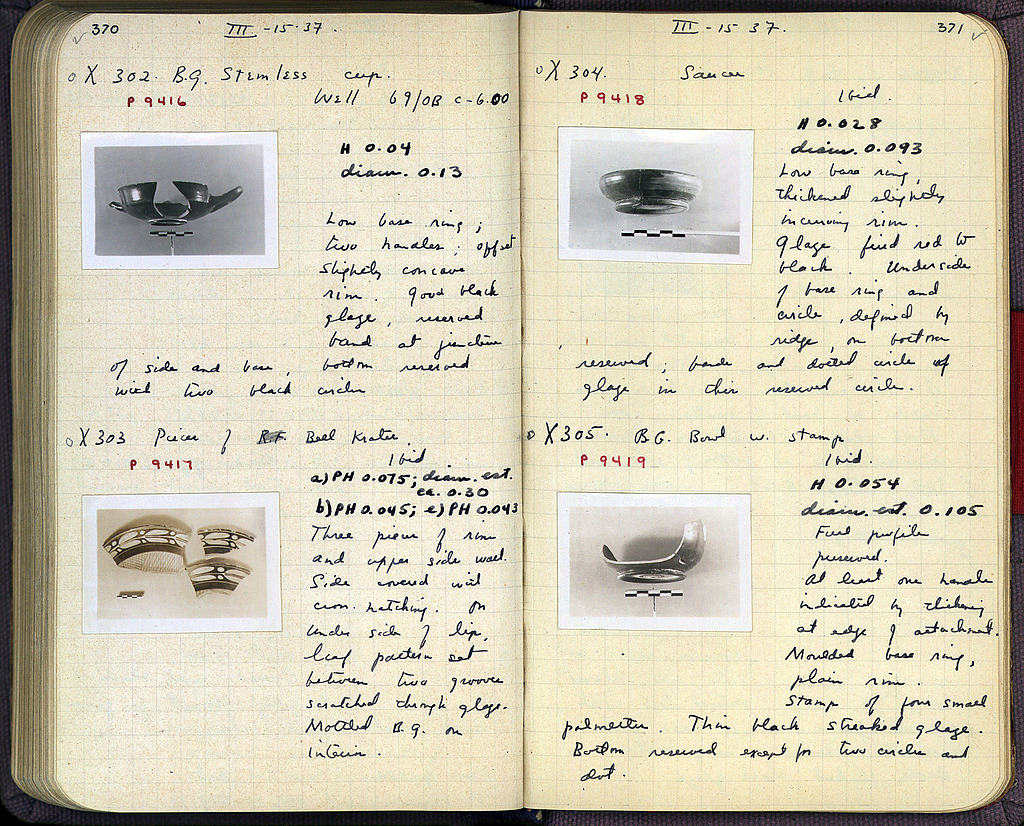 370
III -15-37.
X 302. B.G. Stemless cup.
P 9416
Well 69/OB c-6.00
H 0.04
diam. 0.13
Low base ring;
two handles; offset
slightly concave
rim. Good black
glaze, reserved
band at juncture
of side and base, bottom reserved
with two black circles
X 303 Pieces of R.F. Bell Krater.
P 9417
Ibid
a) PH 0.075; diam. est.
ca. 0.30
b) PH 0.045; c) PH 0.043
Three pieces of rim
and upper side wall.
Side covered with
cross hatching. On
under side of lip,
leaf pattern set
between two grooves
scratched through glaze.
Mottled B.G. on
interior.
371
III -15-37.
X 304. Saucer
P 9418
Ibid.
H 0.028
diam. 0.093
Low base ring,
thickened slightly
incurving rim.
Glaze fired red to
black. Underside
of base ring and
circle, defined by
ridge, on bottom
reserved; bands and dotted circle of
glaze in this reserved circle.
X 305. B.G. Bowl w. stamp
P 9419
Ibid.
H 0.054
diam. est. 0.105
Full profile
preserved.
At least one handle
indicated by thickening
at edge of attachment.
Moulded base ring,
plain rim.
Stamp of four small
palmettes. Thin black streaked glaze.
Bottom reserved except for two circles and
dot.